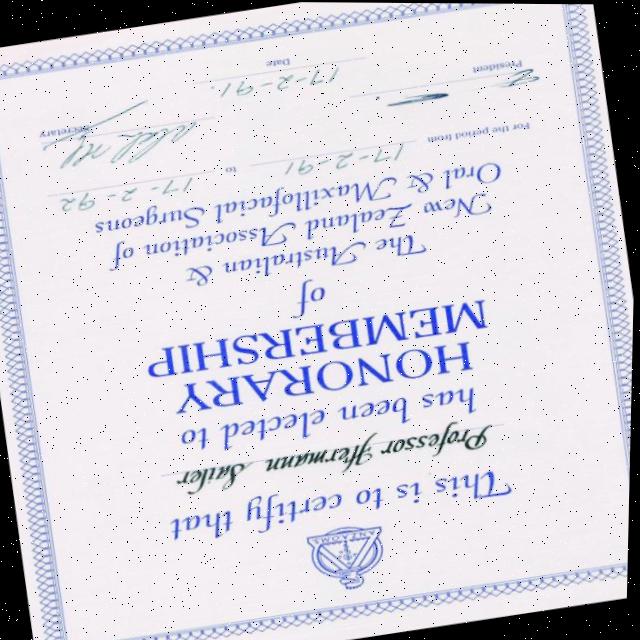 This is to certify that
Professor Hermann Sailer
has been elected to
HONORARY
MEMBERSHIP
of
The Australian &
New Zealand Association of
Oral & Maxillofacial Surgeons
For the period from 17-2-91 to 17-2-92
President
Secretary
17-2-91.
Date